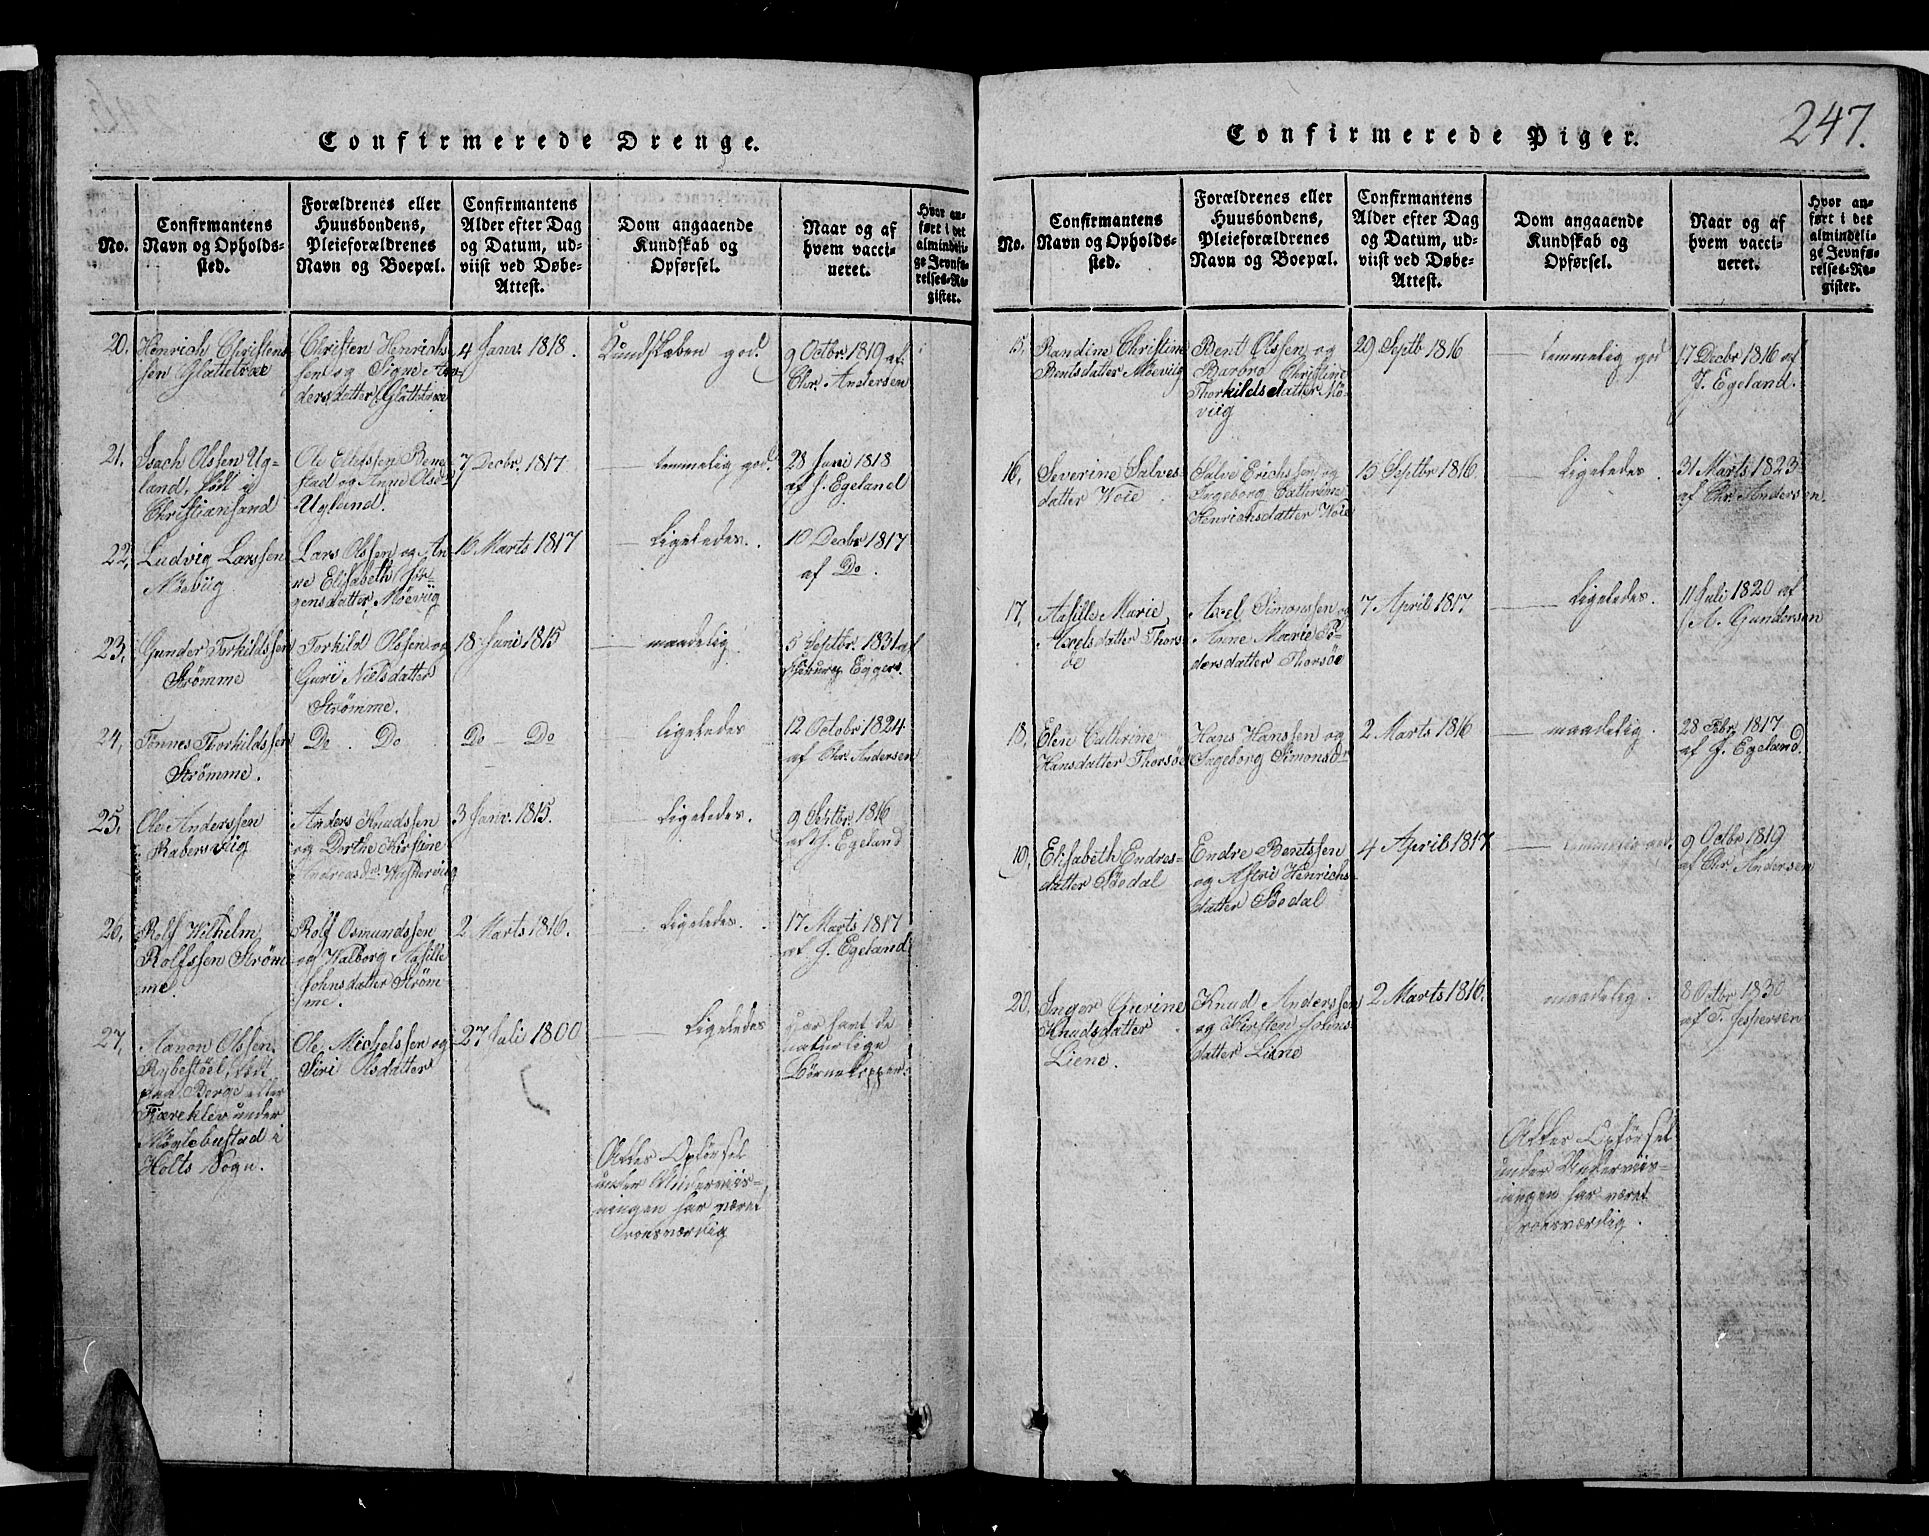 Confirmerede Drenge.
No.
Confirmantens
Navn og Opholds-
sted.
Forældrenes eller
Huusbondens,
Pleieforældrenes
Navn og Boepæl.
Confirmantens
Alder efter Dag
og Datum, ud-
viist ved Døbe-
Attest.
Dom angaaende
Kundskab og
Opførsel.
Naar og af
hvem vacci-
neret.
Hvor an-
ført i det
almindeli-
ge Jevnfø-
relses-Re-
gister.
20.
Henrich Christens
sen Glattetræe
Christen Henrichs
sen og Signe
dersdatter Glattetræe
4 Janr 1818.
Kundskaben god.
9 Octbr 1819 af
Chr. Andersen
21.
Isach Olssen Ug-
land, født i
Christiansand
Ole Ellefssen Bene
stad og Anne Olsd.
Ugland.
7 Decbr. 1817.
temmelig god.
28 Juni 1818
af J. Egeland
22,
Ludvig Larssen
Møeviig
Lars Olssen og An
ne Elisabeth Jør-
gensdatter, Møeviig
16 Marts 1817
ligeledes.
10 Decbr 1817
af Do.
23,
Gunder Torkildssen
Strømme
Torkild Olssen og
Guri Nielsdatter
Strømme.
18 Juni 1815
maadelig
5 Septbr. 1831 af
Eggers.
24,
Tønnes Thorkildssen
Strømme.
Do. Do
Do Do
ligeledes
12 Octobr 1824
af Chr. Andersen
25,
Ole Anderssen
Rabersviig
Anders Knudssen
og Dorthe Kirstine
Andreasdr. Westerviig
3 Janr. 1815.
ligeledes.
9 Septbr. 1816
af J. Egeland
26,
Rolf Wilhelm
Rolfssen Strøm
me.
Rolf Osmundssen
og Walborg Aasille
Johnsdatter Strøm-
me.
2 Marts 1816.
ligeledes.
17 Marts 1817
af J. Egeland
27,
Aanon Olssen
Rybestøel, født
paa Berge eller
Fjæreklev under
i
Holts Sogn.
Ole Michelssen og
Siri Olsdatter
27 Juli 1800
ligeledes
har havt de
naturlige
Børnekopper.
Alles Opførsel
under Underviis-
ningen har været
roesværdig
Confirmerede Piger.
247.
No.
Confirmantens
Navn og Opholds-
sted.
Forældrenes eller
Huusbondens,
Pleieforældrenes
Navn og Boepæl.
Confirmantens
Alder efter Dag
og Datum, ud-
viist ved Døbe-
Attest.
Dom angaaende
Kundskab og
Opførsel.
Naar og af
hvem vacci-
neret.
Hvor an-
ført i det
almindeli-
ge Jevnfø-
relses-Re-
gister.
15,
Randine Christine
Bentsdatter Møeviig
Bent Olssen og
Barbro Christine
Thorkildsdatter Mø-
viig
29 Septb 1816
temmelig god
17 Decbr 1816 af
J. Egeland.
16,
Severine Salves
datter Voie
Salve Erichssen og
Ingeborg Cathrine
Henrichsdatter Voie
15 Septbr 1816.
ligeledes.
31 Marts 1823
af Chr. Andersen
17,
Aasille Marie
Axelsdatter Thors-
øe
Axel Simonssen og
Anne Marie Pe-
dersdatter Thorsøe
7 April 1817
ligeledes.
11 Juli 1820 af
A. Gundersen
18,
Elen Cathrine
Hansdatter Thorsøe
Hans Hanssen og
Ingeborg Simonsdr
2 Marts 1816
maadelig.
28 Febr 1817
af J. Egeland.
19,
Elisabeth Endres-
datter Søodal
Endre Bentssen
og Astri Henrichs-
datter Søodal
4 April 1817
temmelig god.
9 Octbr 1819
af Chr. Andersen
20,
Inger Gurine
Knudsdatter
Liene.
Knud Anderssen
og Kirsten Johns-
datter Liene
2 Marts 1816.
maadelig.
8 Octbr 1830
af T. Jespersen
Alles Opførsel
under Underviis-
ningen har været
roesværdig.